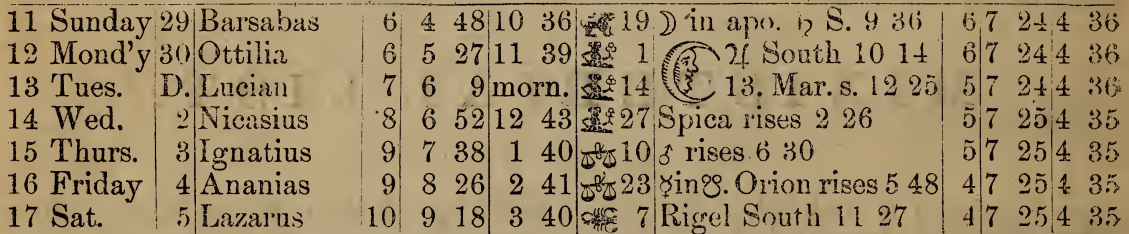 11 Sunday 29 Barsabas 6 4 48 10 36 19 ☽ in apo. ♄ S. 9 36 6 7 24 4 36
12 Mond'y 30 Ottilia 6 5 27 11 39 1 ♃ South 10 14 6 7 24 4 36
13 Tues. D. Lucian 7 6 9 morn. 14 13. Mar. s. 12 25 5 7 24 4 36
14 Wed. 2 Nicasius 8 6 52 12 43 27 Spica rises 2 26 5 7 25 4 35
15 Thurs. 3 Ignatius 9 7 38 1 40 ♎ 10 ♂ rises 6 30 5 7 25 4 35
16 Friday 4 Ananias 9 8 26 2 41 ♎ 23 ☿ in ☋. Orion rises 5 48 4 7 25 4 35
17 Sat. 5 Lazarus 10 9 18 3 40 7 Rigel South 11 27 4 7 25 4 35